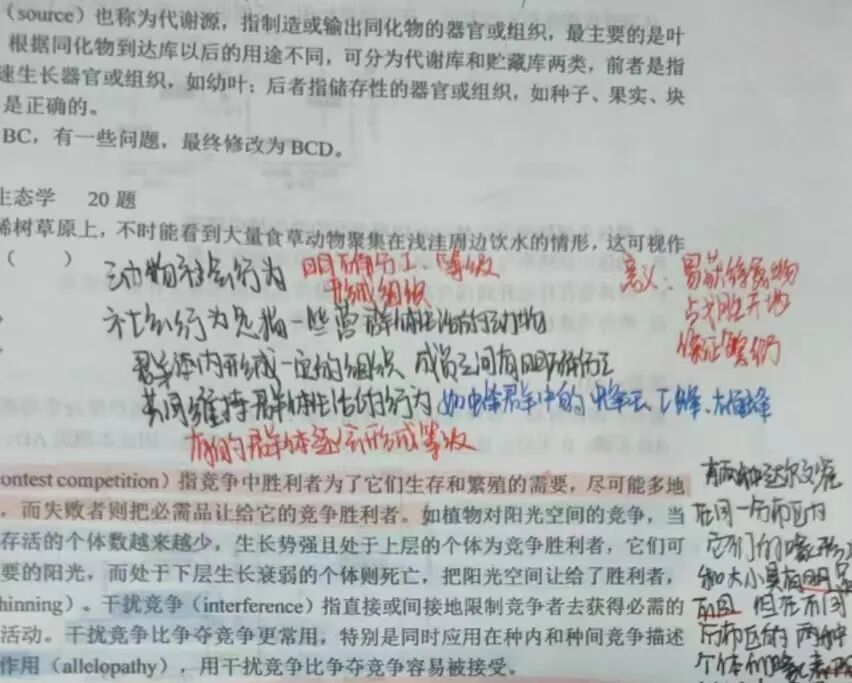 （source）也称为代谢源，指制造或输出同化物的器官或组织，最主要的是叶
根据同化物到达库以后的用途不同，可分为代谢库和贮藏库两类，前者是指
速生长器官或组织，如幼叶；后者指储存性的器官或组织，如种子、果实、块
是正确的。
BC，有一些问题，最终修改为 BCD。
生态学 20 题
稀树草原上，不时能看到大量食草动物聚集在浅洼周边饮水的情形，这可视作
（ ）
动物社会行为 明确分工、等级
形成组织
意义：易获得食物
占领胜开地
保证繁衍
社会行为是指一些营群体性生活的动物
群体内形成一定的组织 成员之间有明确分工
共同维持群体性生活的行为 如蜂群中的 蜂王 工蜂、雄蜂
有的群体还会形成等级
ontest competition）指竞争中胜利者为了它们生存和繁殖的需要，尽可能多地
，而失败者则把必需品让给它的竞争胜利者。如植物对阳光空间的竞争，当
存活的个体数越来越少，生长势强且处于上层的个体为竞争胜利者，它们可
要的阳光，而处于下层生长衰弱的个体则死亡，把阳光空间让给了胜利者，
hinning）。干扰竞争（interference）指直接或间接地限制竞争者去获得必需的
活动。干扰竞争比争夺竞争更常用，特别是同时应用在种内和种间竞争描述
作用（allelopathy），用干扰竞争比争夺竞争容易被接受。
有两种达尔文雀
在同一分布区内
它们的喙形
和大小具有明显
但在不同
分布区的两种
个体的喙